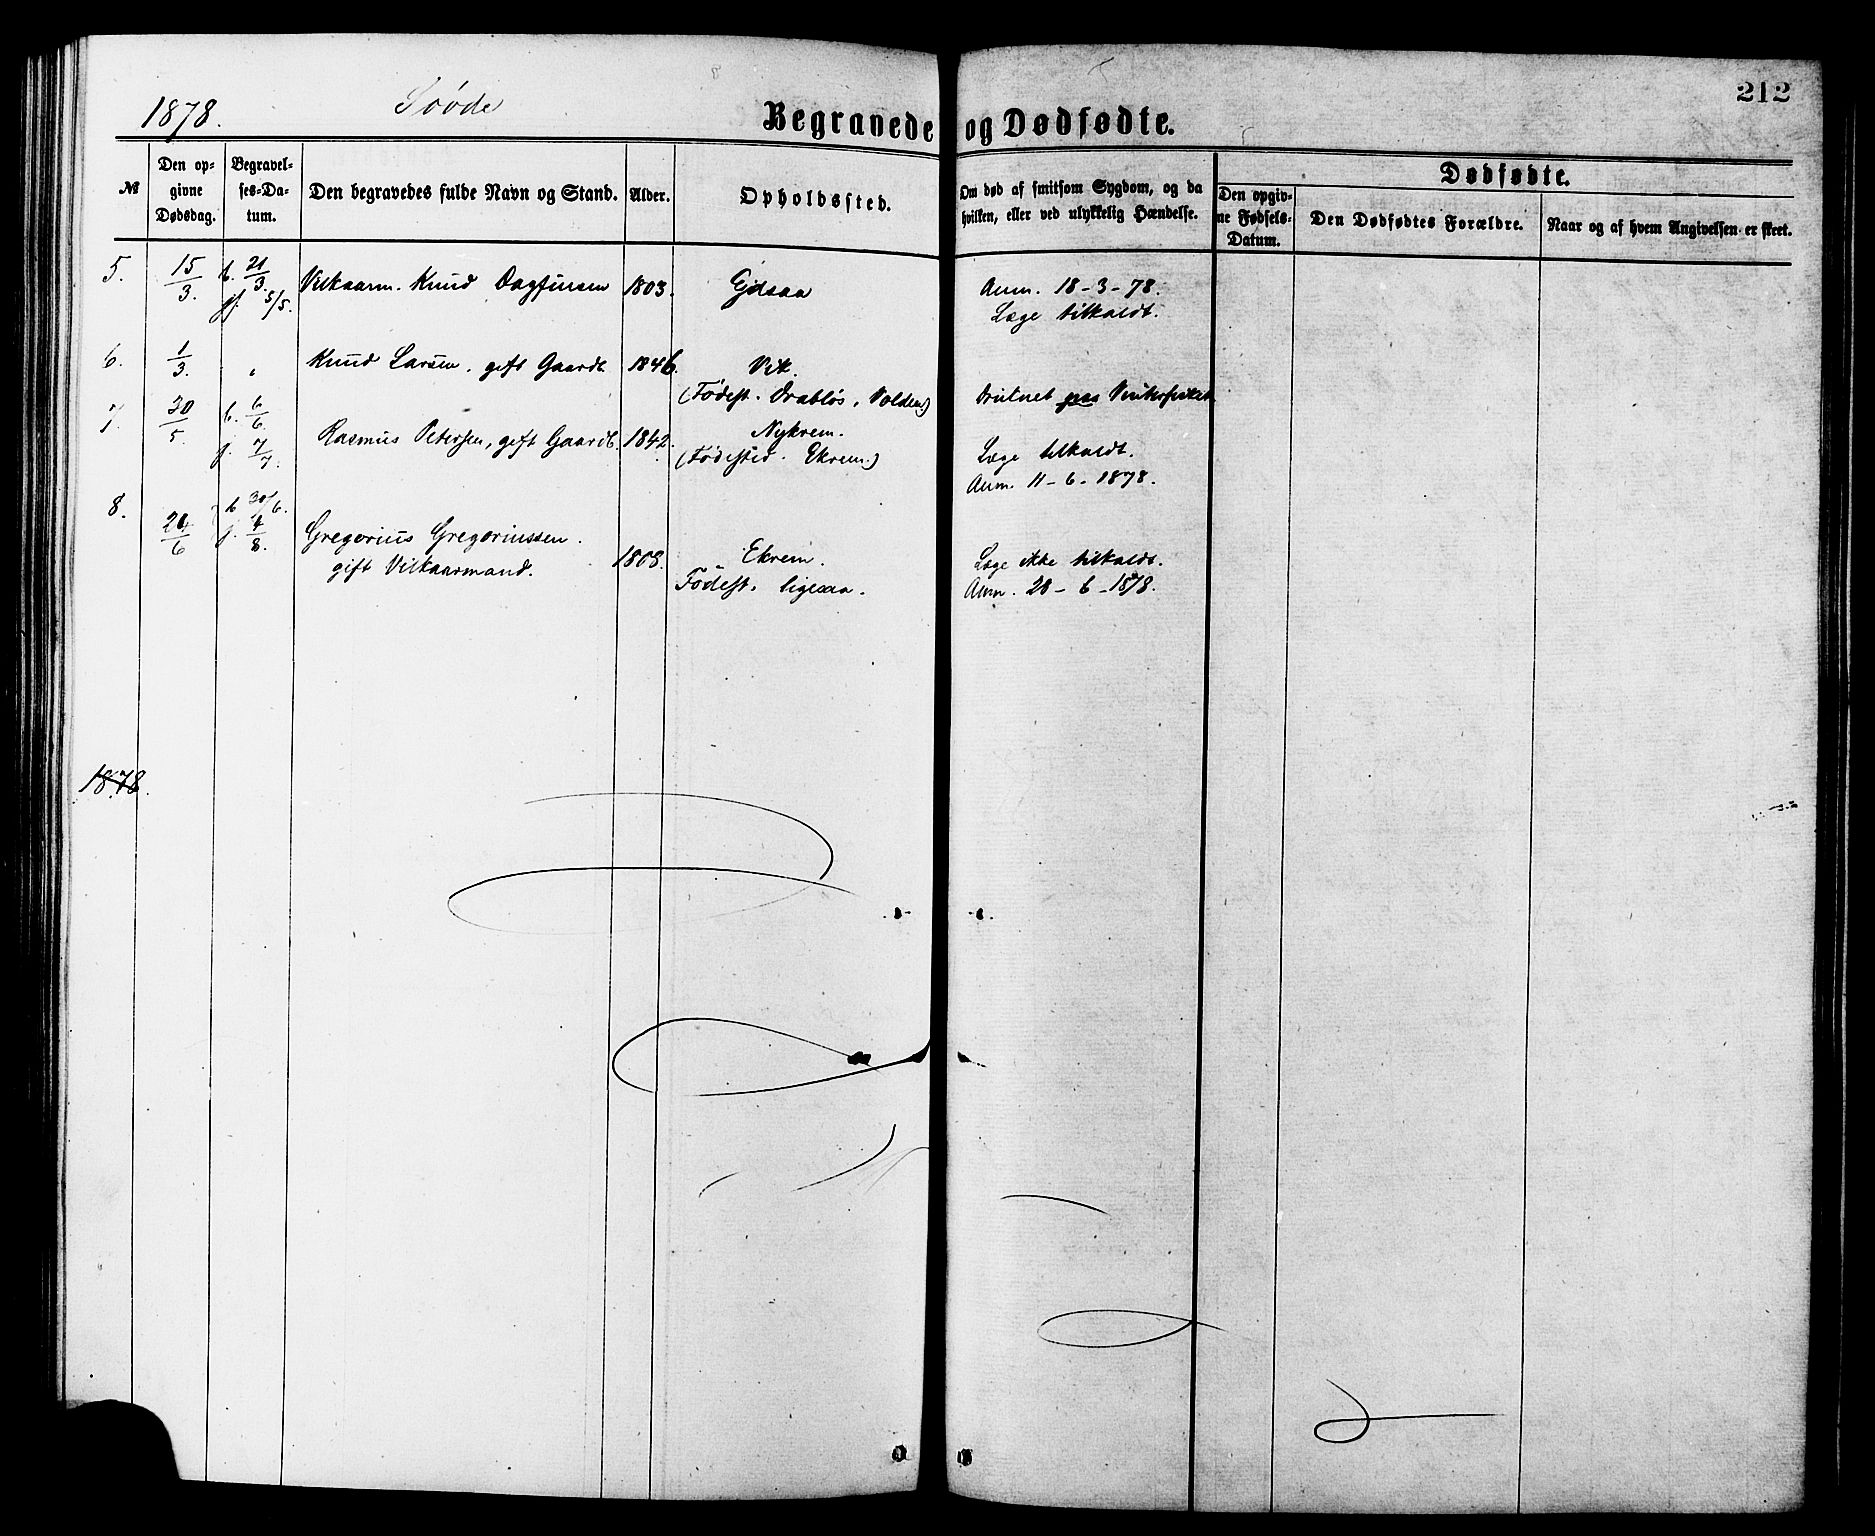 1878. Søvde Begravede og Dødfødte. 212
№ Den opgivne Dødsdag. Begravelses-Datum. Den begravedes fulde Navn og Stand. Alder. Opholdssted. Om død af smitsom Sygdom, og da hvilken, eller ved ulykkelig Hændelse. Dødfødte.
Den opgivne Fødsels-Datum. Den Dødfødtes Forældre. Naar og af hvem Angivelsen er skeet.
5. 15/3. b. 21/3. Vilkaarm. Knud Dagfinsen 1803. Ejdsaa Anm. 18-3-78.
jf. 5/5. Læge tilkaldt.
6. 1/3. " Knud Larsen. gift Gaardb. 1846. Vik.
(Fødest. Drabløs, Volden) Druknet paa Vinterfisket
7. 30/5. b. 6/6. Rasmus Petersen, gift Gaardb. 1842. Nykrem.
j. 7/7. (Fødested. Ekrem.) Læge tilkaldt.
Anm. 11-6-1878.
8. b 30/6.
/6 j. 4/8. Gregorius Gregoriussen.
gift Vilkaarmand. 1808. Ekrem. Læge ikke tilkaldt.
Fødest. ligesaa. Anm. 28-6-1878.
1878.